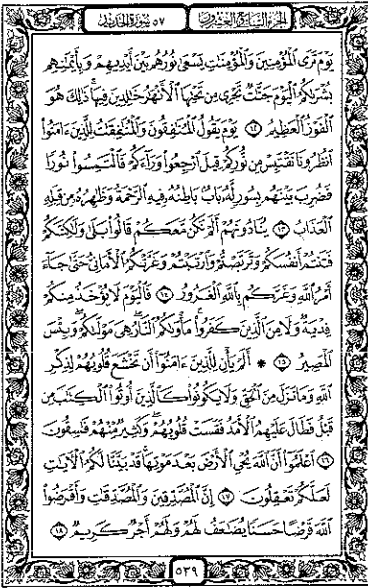 الجزء السابع والعشرون ٥٧ سورة الحديد
يَوْمَ تَرَى الْمُؤْمِنِينَ وَالْمُؤْمِنَاتِ يَسْعَىٰ نُورُهُم بَيْنَ أَيْدِيهِمْ وَبِأَيْمَانِهِم
بُشْرَاكُمُ الْيَوْمَ جَنَّاتٌ تَجْرِي مِن تَحْتِهَا الْأَنْهَارُ خَالِدِينَ فِيهَا ذَٰلِكَ هُوَ
الْفَوْزُ الْعَظِيمُ ١٢ يَوْمَ يَقُولُ الْمُنَافِقُونَ وَالْمُنَافِقَاتُ لِلَّذِينَ ءَامَنُوا
انظُرُونَا نَقْتَبِسْ مِن نُّورِكُمْ قِيلَ ارْجِعُوا وَرَاءَكُمْ فَالْتَمِسُوا نُورًا
فَضُرِبَ بَيْنَهُم بِسُورٍ لَّهُ بَابٌ بَاطِنُهُ فِيهِ الرَّحْمَةُ وَظَاهِرُهُ مِن قِبَلِهِ
الْعَذَابُ ١٣ يُنَادُونَهُمْ أَلَمْ نَكُن مَّعَكُمْ قَالُوا بَلَىٰ وَلَٰكِنَّكُمْ
فَتَنتُمْ أَنفُسَكُمْ وَتَرَبَّصْتُمْ وَارْتَبْتُمْ وَغَرَّتْكُمُ الْأَمَانِيُّ حَتَّىٰ جَاءَ
أَمْرُ اللَّهِ وَغَرَّكُم بِاللَّهِ الْغَرُورُ ١٤ فَالْيَوْمَ لَا يُؤْخَذُ مِنكُمْ
فِدْيَةٌ وَلَا مِنَ الَّذِينَ كَفَرُوا مَأْوَاكُمُ النَّارُ هِيَ مَوْلَاكُمْ وَبِئْسَ
الْمَصِيرُ ١٥ * أَلَمْ يَأْنِ لِلَّذِينَ ءَامَنُوا أَن تَخْشَعَ قُلُوبُهُمْ لِذِكْرِ
اللَّهِ وَمَا نَزَلَ مِنَ الْحَقِّ وَلَا يَكُونُوا كَالَّذِينَ أُوتُوا الْكِتَابَ مِن
قَبْلُ فَطَالَ عَلَيْهِمُ الْأَمَدُ فَقَسَتْ قُلُوبُهُمْ وَكَثِيرٌ مِّنْهُمْ فَاسِقُونَ
١٦ اعْلَمُوا أَنَّ اللَّهَ يُحْيِي الْأَرْضَ بَعْدَ مَوْتِهَا قَدْ بَيَّنَّا لَكُمُ الْآيَاتِ
لَعَلَّكُمْ تَعْقِلُونَ ١٧ إِنَّ الْمُصَّدِّقِينَ وَالْمُصَّدِّقَاتِ وَأَقْرَضُوا
اللَّهَ قَرْضًا حَسَنًا يُضَاعَفُ لَهُمْ وَلَهُمْ أَجْرٌ كَرِيمٌ ١٨
٥٣٩